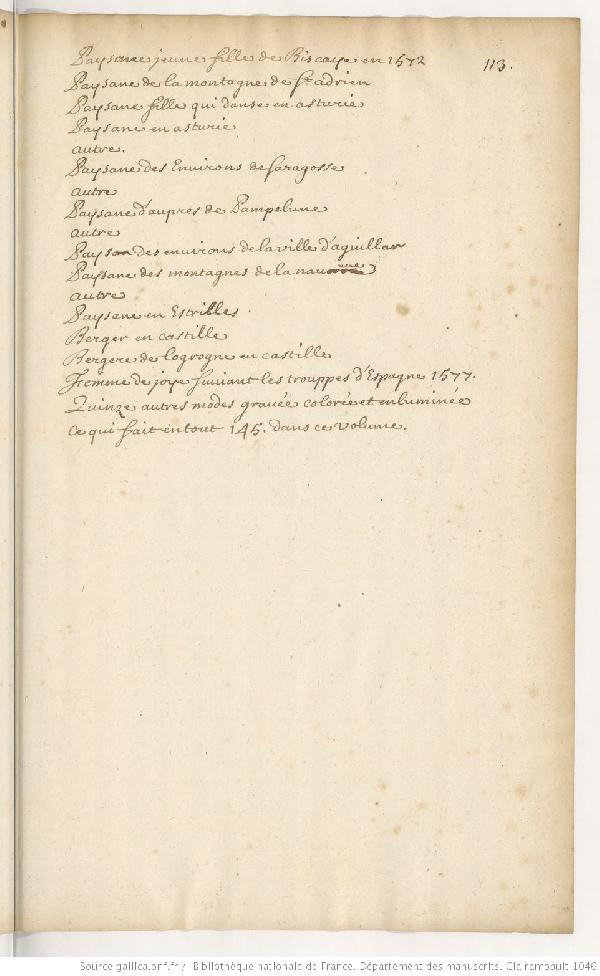 Paysanne jeune fille de Biscaye en 1572
113.
Paysane de la montagne de St adrien
Paysane fille qui danse en asturie
Paysane en asturie
autre.
Paysane des Environs de saragosse
autre
Paysane d'aupres de Pampelune
autre
Paysan des environs de la ville d'aguillar
Paysane des montagnes de la nau
autre
Paysane en Estrilles.
Berger en castille
Bergere de logrogne en castille
Femme de joye suivant les trouppes d'Espagne 1577.
Quinze autres modes gravée colorée et enluminée
ce qui fait en tout 145. dans ce volume.
Source gallica.bnf.fr / Bibliothèque nationale de France. Département des manuscrits. Clairambault 1046